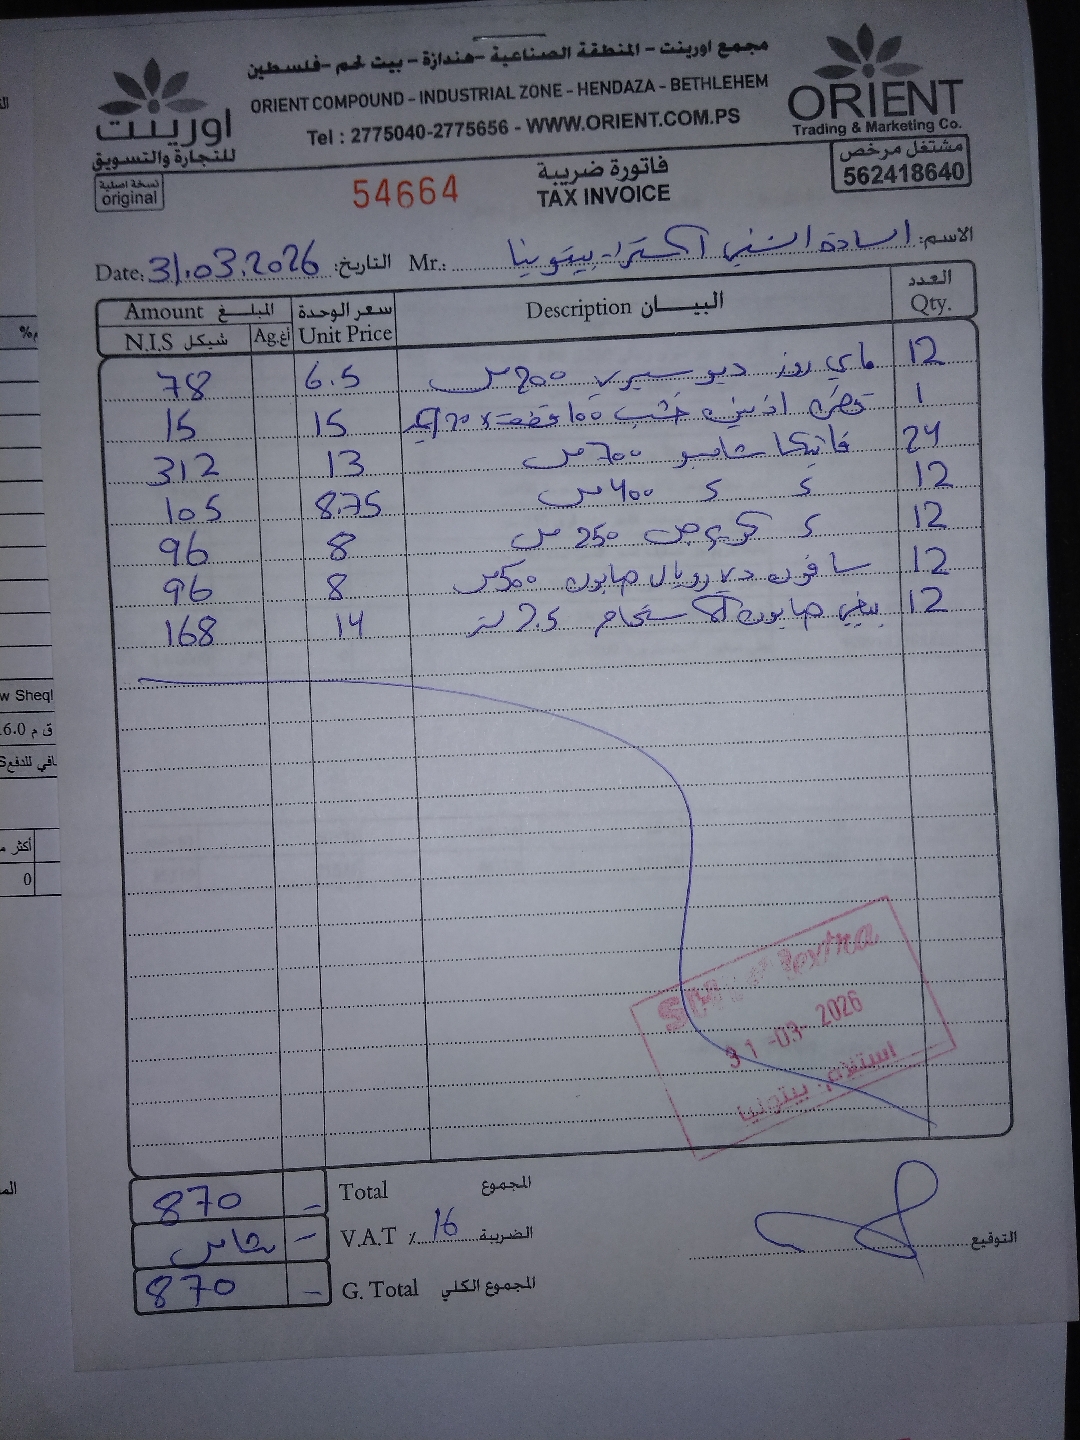 مجمع اورينت - المنطقة الصناعية - هندازة - بيت لحم - فلسطين
ORIENT COMPOUND - INDUSTRIAL ZONE - HENDAZA - BETHLEHEM
Tel : 2775040-2775656 - WWW.ORIENT.COM.PS
اورينت
للتجارة والتسويق
ORIENT
Trading & Marketing Co.
نسخة اصلية
original
54664
فاتورة ضريبة
TAX INVOICE
مشتغل مرخص
562418640
Date: 31.03.2026 التاريخ: Mr.: الاسم: السادة السني اكسترا - بيتونيا
Amount المبلغ سعر الوحدة Description البيان العدد
N.I.S شيكل Ag. أغ Unit Price Qty.
78 6.5 ماي روز ديو سبري 200 مل 12
15 15 اذنين خشب 100 قطعة 1
312 13 فاتيكا شامبو 700 مل 24
105 8.75 ء ء 400 مل 12
96 8 ء كريم 250 مل 12
96 8 رويال صابون 500 مل 12
168 14 صابون استحمام 2.5 لتر 12
Sextra
31-03-2026
استلام - بيتونيا
870 - Total المجموع
شامل - V.A.T ٪ 16 الضريبة
870 - G. Total المجموع الكلي
التوقيع
w Sheql
6.0 ق م
افي للدفع
أكثر م
0
%